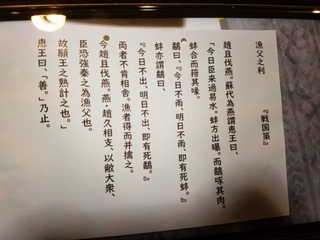 漁父之利　　『戦国策』
趙且伐燕。蘇代為燕謂恵王曰、
「今日臣来過易水。蚌方出曝。而鷸啄其肉。
蚌合而箝其喙。
鷸曰、『今日不雨、明日不雨、即有死蚌。』
蚌亦謂鷸曰、
『今日不出、明日不出、即有死鷸。』
両者不肯相舎。漁者得而幷擒之。
今趙且伐燕。燕・趙久相支、以敝大衆、
臣恐強秦之為漁父也。
故願王之熟計之也。」
恵王曰、「善。」乃止。